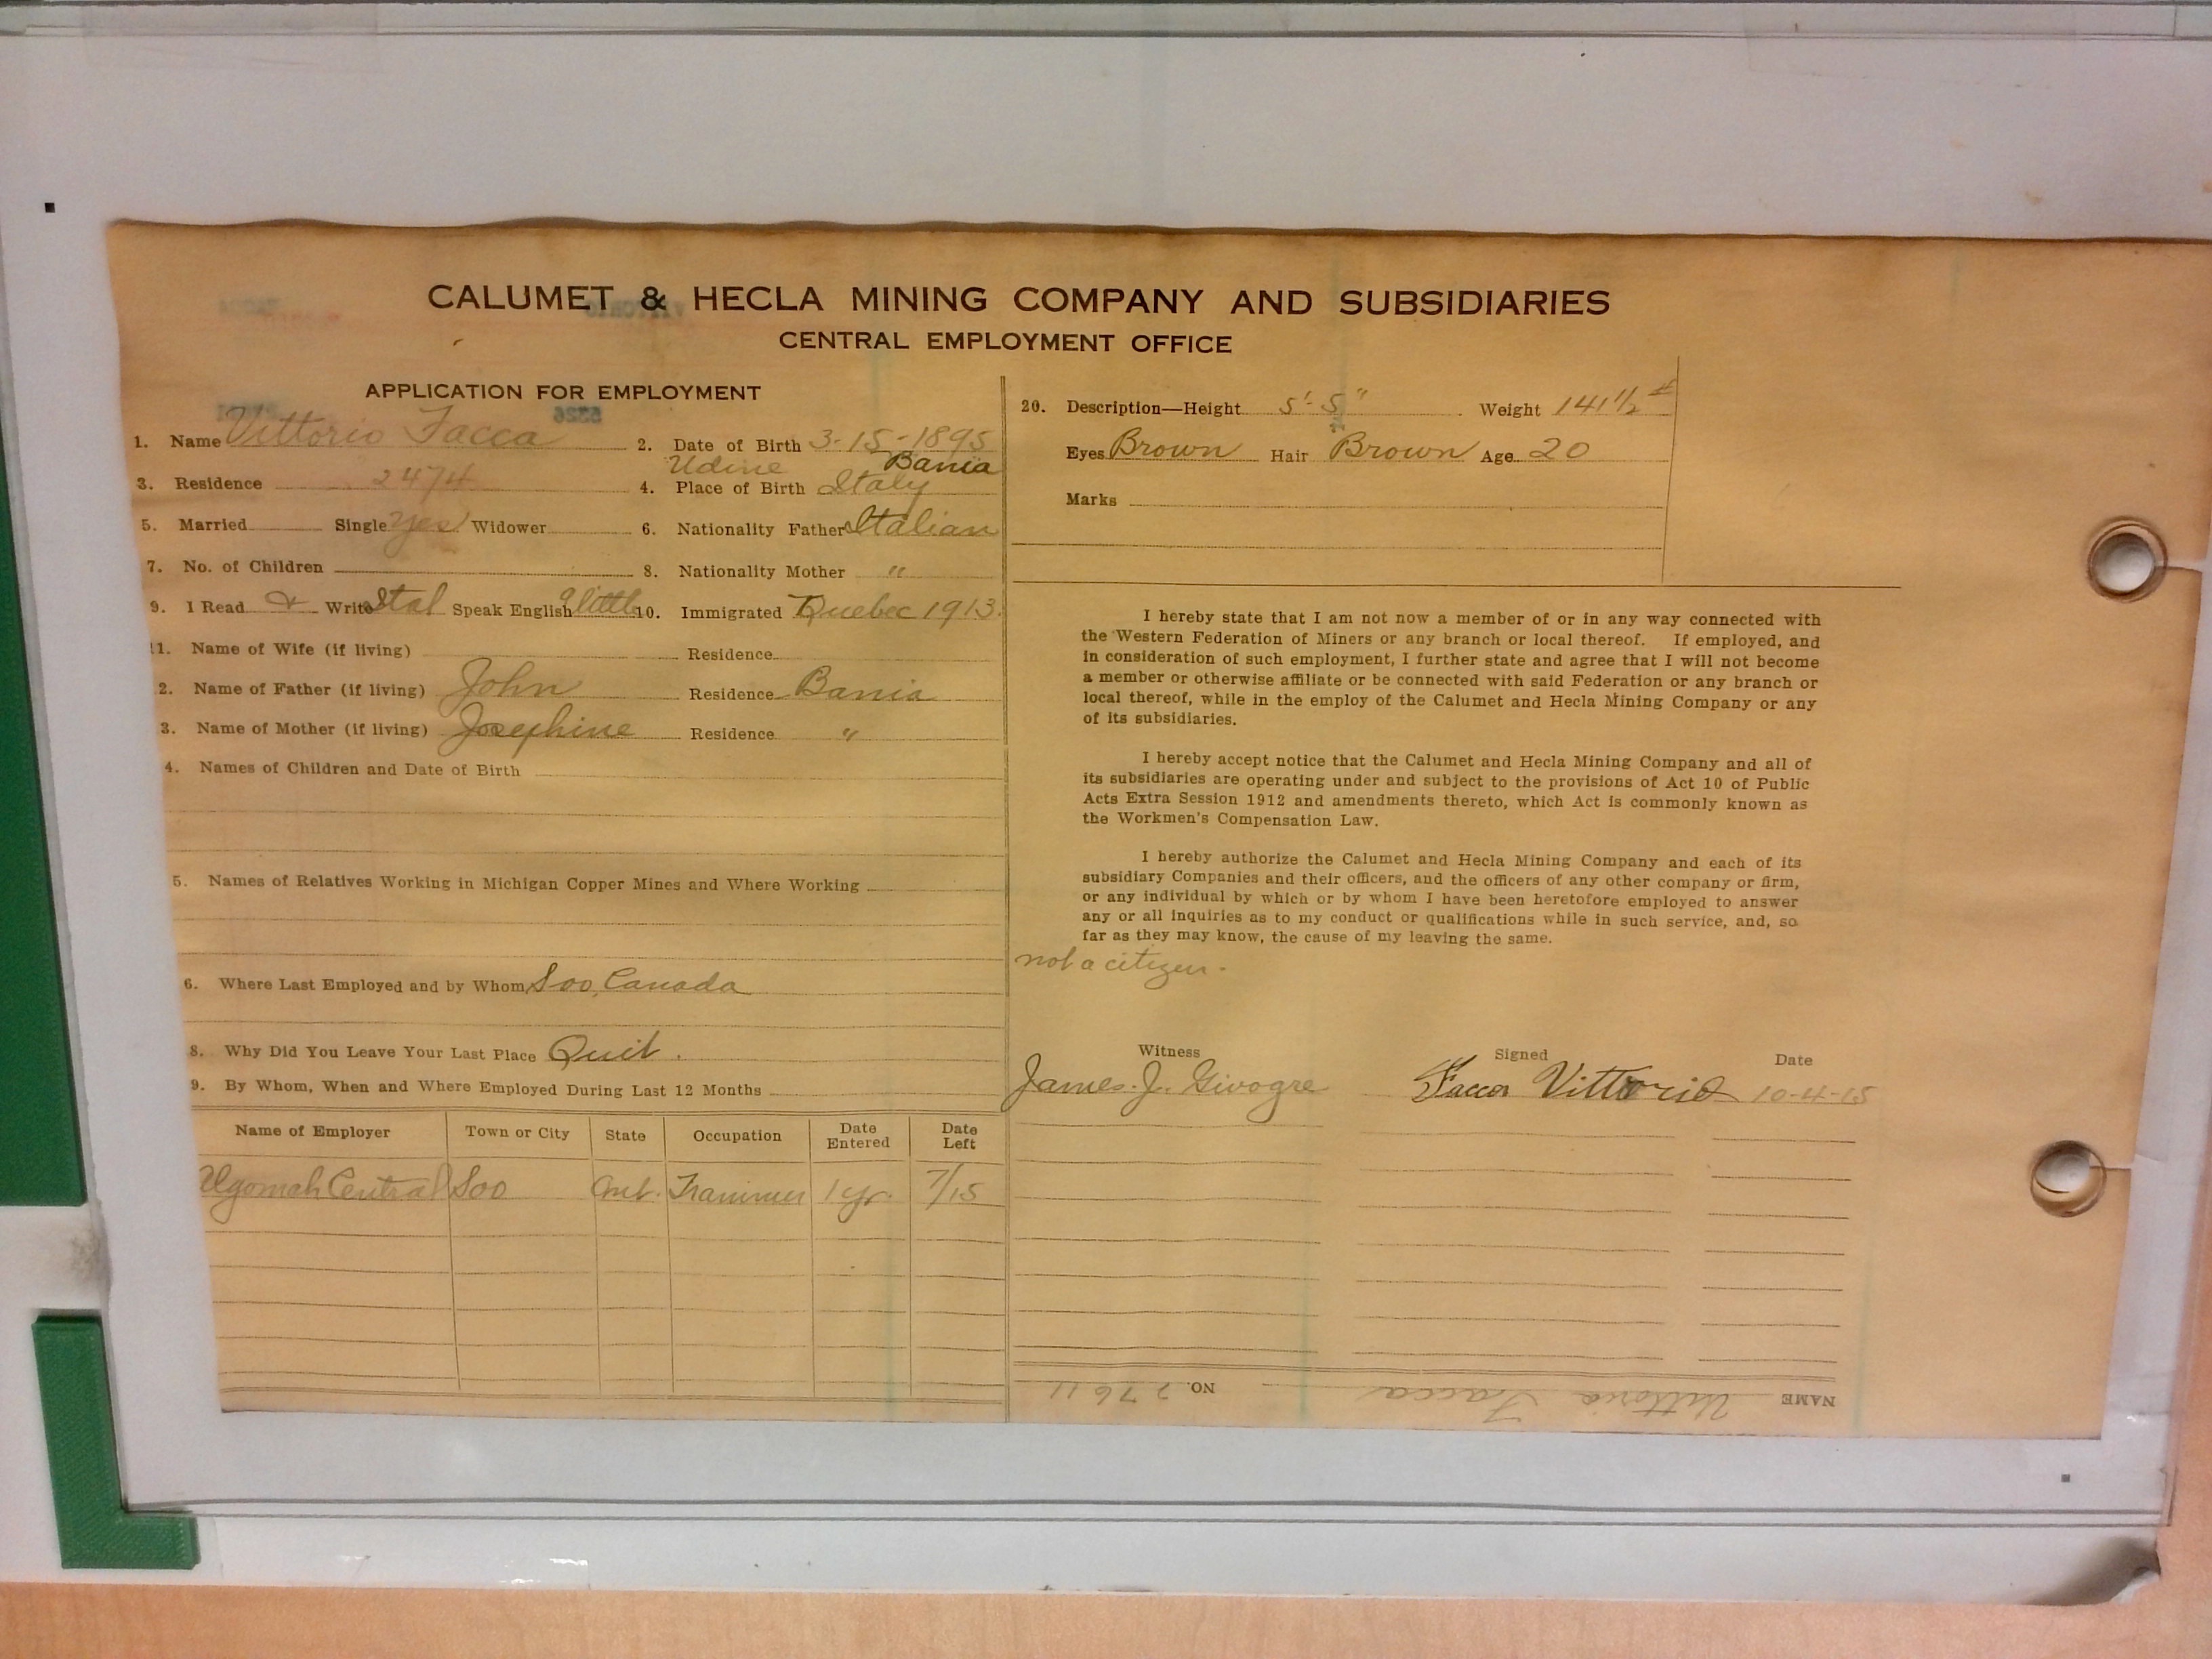 CALUMET & HECLA MINING COMPANY AND SUBSIDIARIES
CENTRAL EMPLOYMENT OFFICE
APPLICATION FOR EMPLOYMENT
1. Name Vittorio Facca 2. Date of Birth 3-15-1895
Udine Bania
3. Residence 2474 4. Place of Birth Italy
5. Married Single Yes Widower 6. Nationality Father Italian
7. No. of Children 8. Nationality Mother "
9. I Read & Write Ital Speak English a little 10. Immigrated Quebec 1913.
11. Name of Wife (if living) Residence
2. Name of Father (if living) John Residence Bania
3. Name of Mother (if living) Josephine Residence "
4. Names of Children and Date of Birth
5. Names of Relatives Working in Michigan Copper Mines and Where Working
6. Where Last Employed and by Whom Soo, Canada
8. Why Did You Leave Your Last Place Quit.
9. By Whom, When and Where Employed During Last 12 Months
Name of Employer Town or City State Occupation Date Entered Date Left
Central Soo Ont. Trammer 1 yr. 7/15
20. Description—Height 5'-5" Weight 141 1/2 #
Eyes Brown Hair Brown Age 20
Marks
I hereby state that I am not now a member of or in any way connected with
the Western Federation of Miners or any branch or local thereof. If employed, and
in consideration of such employment, I further state and agree that I will not become
a member or otherwise affiliate or be connected with said Federation or any branch or
local thereof, while in the employ of the Calumet and Hecla Mining Company or any
of its subsidiaries.
I hereby accept notice that the Calumet and Hecla Mining Company and all of
its subsidiaries are operating under and subject to the provisions of Act 10 of Public
Acts Extra Session 1912 and amendments thereto, which Act is commonly known as
the Workmen's Compensation Law.
I hereby authorize the Calumet and Hecla Mining Company and each of its
subsidiary Companies and their officers, and the officers of any other company or firm,
or any individual by which or by whom I have been heretofore employed to answer
any or all inquiries as to my conduct or qualifications while in such service, and, so
far as they may know, the cause of my leaving the same.
not a citizen.
Witness Signed Date
James. J. Givogre Facca Vittorio 10-4-15
NAME Vittorio Facca NO.